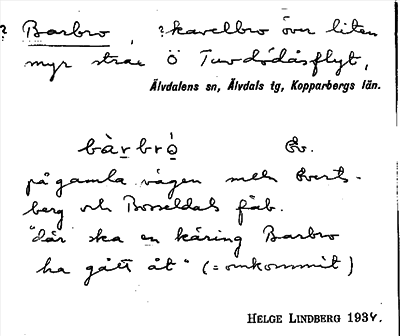 ? Barbro, ?kavelbro över liten
myr strax Ö Tuvdödåsflyt,
Älvdalens sn, Älvdals tg, Kopparbergs län.
bàrbrò̀ Ev.
på gamla vägen mell. Everts-
berg och Bosseldals fäb.
"där ska en käring Barbro
ha gått åt" (= omkommit)
HELGE LINDBERG 1934.